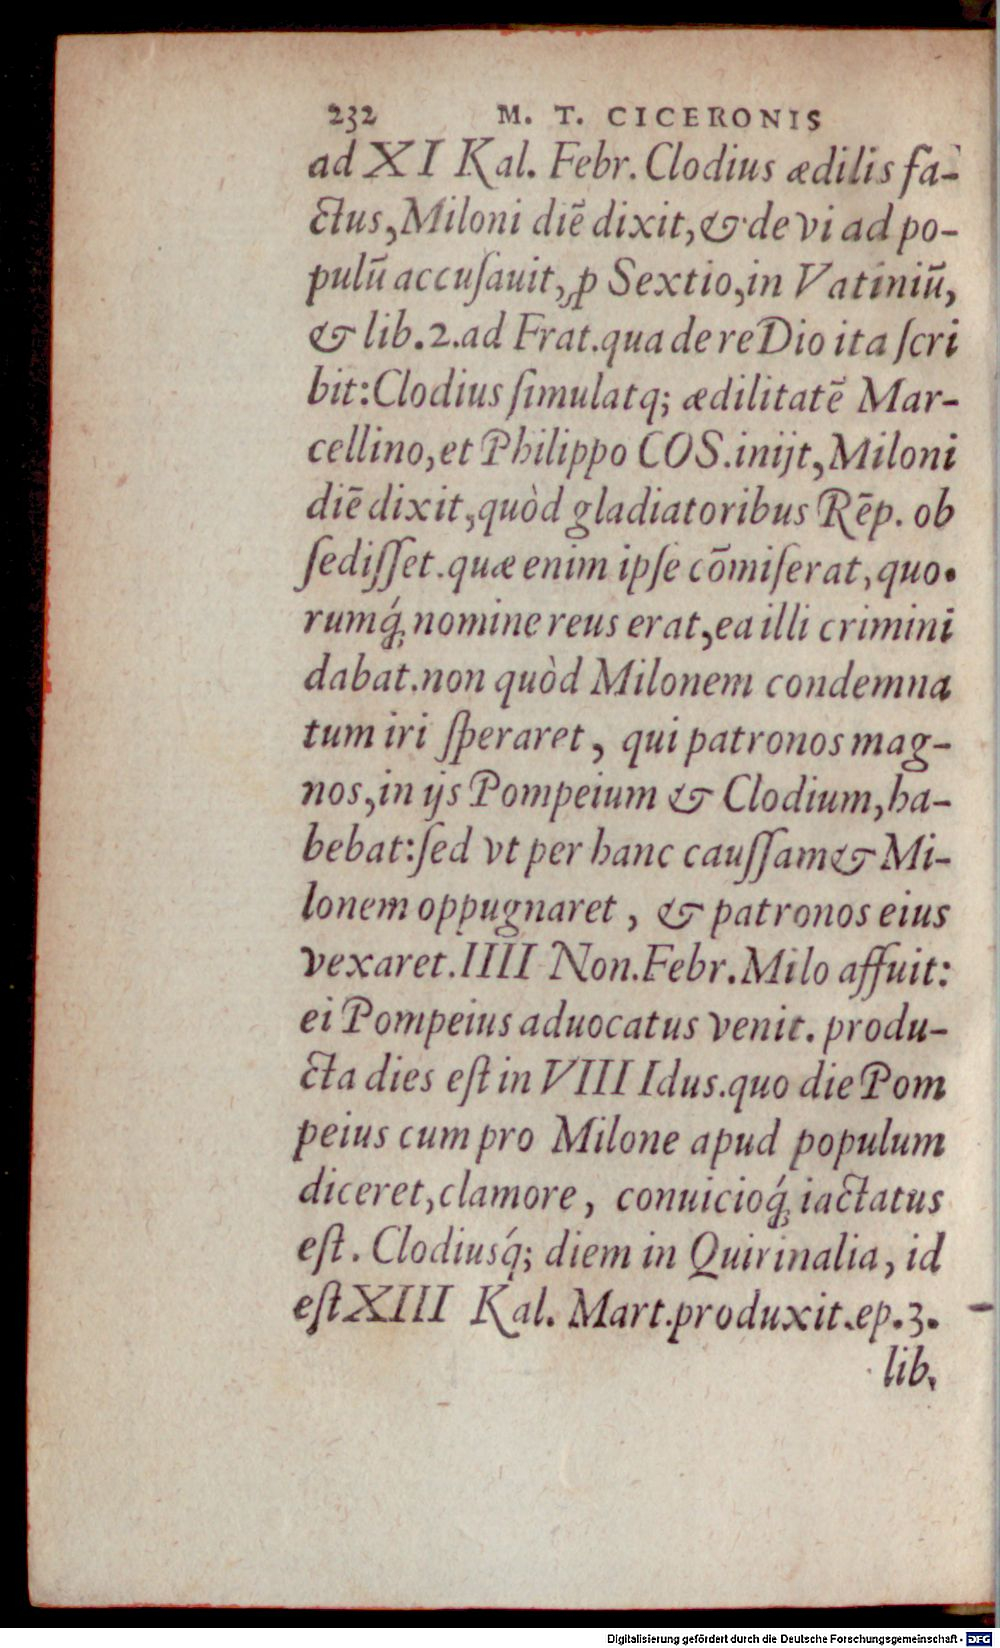 232 M. T. CICERONIS
ad XI Kal. Febr. Clodius ædilis fa-
ctus, Miloni diē dixit, & de vi ad po-
pulū accuſauit, ꝓ Sextio, in Vatiniū,
& lib. 2. ad Frat. qua de re Dio ita ſcri
bit: Clodius ſimulatq; ædilitatē Mar-
cellino, et Philippo COS. inijt, Miloni
diē dixit, quòd gladiatoribus Rēp. ob
ſediſſet. quæ enim ipſe cōmiſerat, quo-
rumq́; nomine reus erat, ea illi crimini
dabat. non quòd Milonem condemna
tum iri ſperaret, qui patronos mag-
nos, in ijs Pompeium & Clodium, ha-
bebat: ſed vt per hanc cauſſam & Mi-
lonem oppugnaret, & patronos eius
vexaret. IIII Non. Febr. Milo affuit:
ei Pompeius aduocatus venit. produ-
cta dies eſt in VIII Idus. quo die Pom
peius cum pro Milone apud populum
diceret, clamore, conuicioq́; iactatus
eſt. Clodiusq́; diem in Quirinalia, id
eſt XIII Kal. Mart. produxit. ep. 3.
lib.
Digitalisierung gefördert durch die Deutsche Forschungsgemeinschaft - DFG